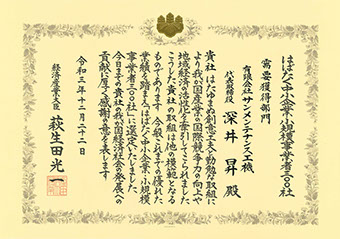 はばたく中小企業・小規模事業者三〇〇社
需要獲得部門
有限会社サンメンテナンス工機
代表取締役 深井 昇 殿
貴社はたゆまぬ創意工夫と勤勉な取組に
より我が国産業の国際競争力の向上や
地域経済の活性化を牽引してこられました
こうした貴社の取組は他の模範となる
ものであります 今般これまでの優れた
業績を踏まえ「はばたく中小企業・小規模
事業者三〇〇社」に選定いたしました
今日までの貴社の我が国経済社会の発展への
貢献に厚く感謝の意を表します
令和三年十二月二十二日
経済産業大臣 萩生田光一